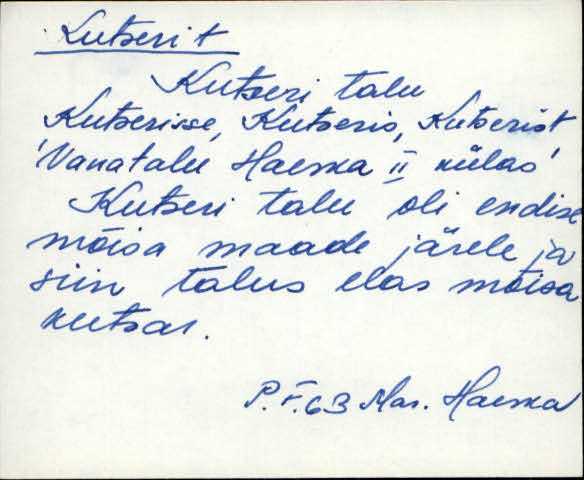 Kutseri t
Kutseri talu
Kutserisse, Kutseris, Kutserist
'Vanatalu Haeska II külas'
Kutseri talu oli endise
mõisa maade järele ja
siin talus elas mõisa
kutsar.
P. F. 63 Mar. Haeska